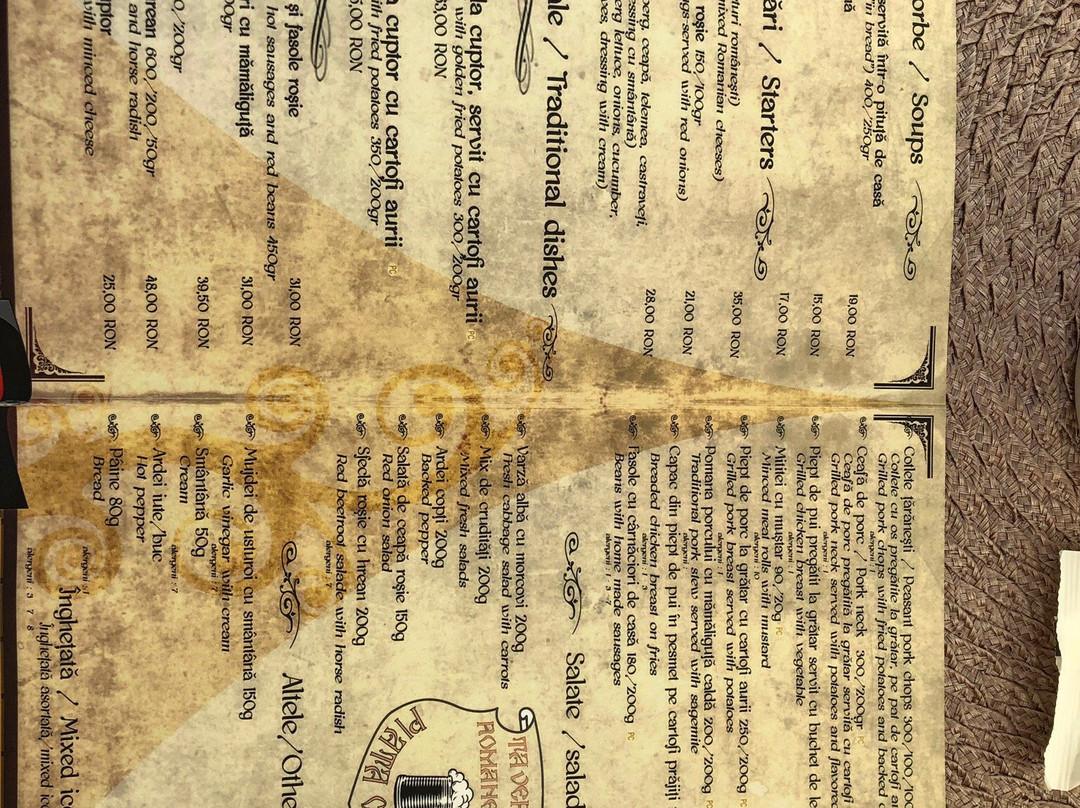 orbe / Soups
servită într-o pituţă de casă
in bread") 400/250gr
19,00 RON
15,00 RON
17,00 RON
ări / Starters
turi româneşti)
mixed Romanian cheeses) 35,00 RON
roşie 150/100gr
gs served with red onions) 21,00 RON
berg, ceapă, telemea, castraveţi, 28,00 RON
essing cu smântână)
erg lettuce, onions, cucumber,
ves, dressing with cream)
ale / Traditional dishes
la cuptor, servit cu cartofi aurii PC
with golden fried potatoes 300/200gr
33,00 RON
a cuptor cu cartofi aurii PC
ith fried potatoes 350/200gr
5,00 RON
şi fasole roşie 31,00 RON
hot sausages and red beans 450gr
ri cu mămăliguţă 31,00 RON
00gr
39,50 RON
/200gr
rean 600/200/50gr 48,00 RON
and horse radish
ptor 25,00 RON
with minced cheese
Cotlete ţărăneşti / Peasant pork chops 300/100/10
Cotlete cu os pregătite la grătar, pe pat de cartofi a
Grilled pork chops with fried potatoes and backed
alergenii : 1
Ceafă de porc / Pork neck 300/200gr PC
Ceafă de porc pregătită la grătar servită cu cartofi
Grilled pork neck served with potatoes and flavore
alergenii : 1
Piept de pui pregătit la grătar servit cu buchet de le
Grilled chicken breast with vegetable
Mititei cu muştar 90/20g PC
Minced meat rolls with mustard
alergenii : 10
Piept de porc la grătar cu cartofi aurii 250/200g PC
Grilled pork breast served with potatoes
alergenii : 1
Pomana porcului cu mămăliguţă caldă 200/200g PC
Traditional pork stew served with sagemite
alergenii : 1
Capac din piept de pui în pesmet pe cartofi prăjiţi
Breaded chicken breast on fries
alergenii : 1 3
Fasole cu cârnăciori de casă 180/200g PC
Beans with home made sausages
alergenii : 1 3 7
Salate / salad
Varză albă cu morcovi 200g
Fresh cabbage salad with carrots
Mix de crudităţi 200g
Mixed fresh salads
Ardei copţi 200g
Backed pepper
Salată de ceapă roşie 150g
Red onion salad
Sfeclă roşie cu hrean 200g
Red beetroot salade with horse radish
alergenii : 7
Altele/Othe
Mujdei de usturoi cu smântână 150g
Garlic vinegar with cream
alergenii : 7
Smântână 50g
Cream
alergenii : 7
Ardei iute/buc
Hot pepper
Pâine 80g
Bread
alergenii : 1
Îngheţată / Mixed ice
Îngheţată asortată/mixed ic
alergenii : 3 7 8
TAVER
ROMANE
PIATTA